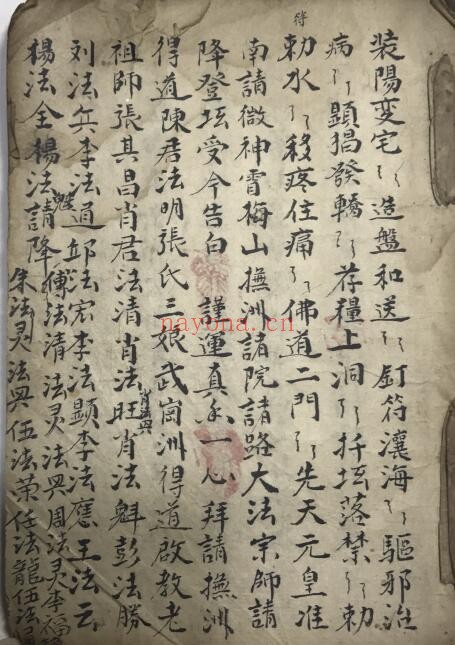 装陽变宅〻造盤和送〻釘符瀼海〻驅邪治
病〻顕猖發轎〻存糧上洞〻扦坛落禁〻勅
符
勅水〻移疼住痛〻佛道二門〻先天元皇准
南請微神霄梅山撫洲諸院請路大法宗師請
降登坛受今告白 謹運真香一心拜請撫洲
得道陳君法明張氏三娘武崗洲得道啟教老
祖師張其昌肖君法清肖法旺肖法魁彭法勝
肖法興
列法兵李法道邱法宏李法顕李法應王法云
楊法全楊法請降傅法清法灵法興周法灵李福
朱法灵法興伍法荣任法龍伍法
nayona.cn